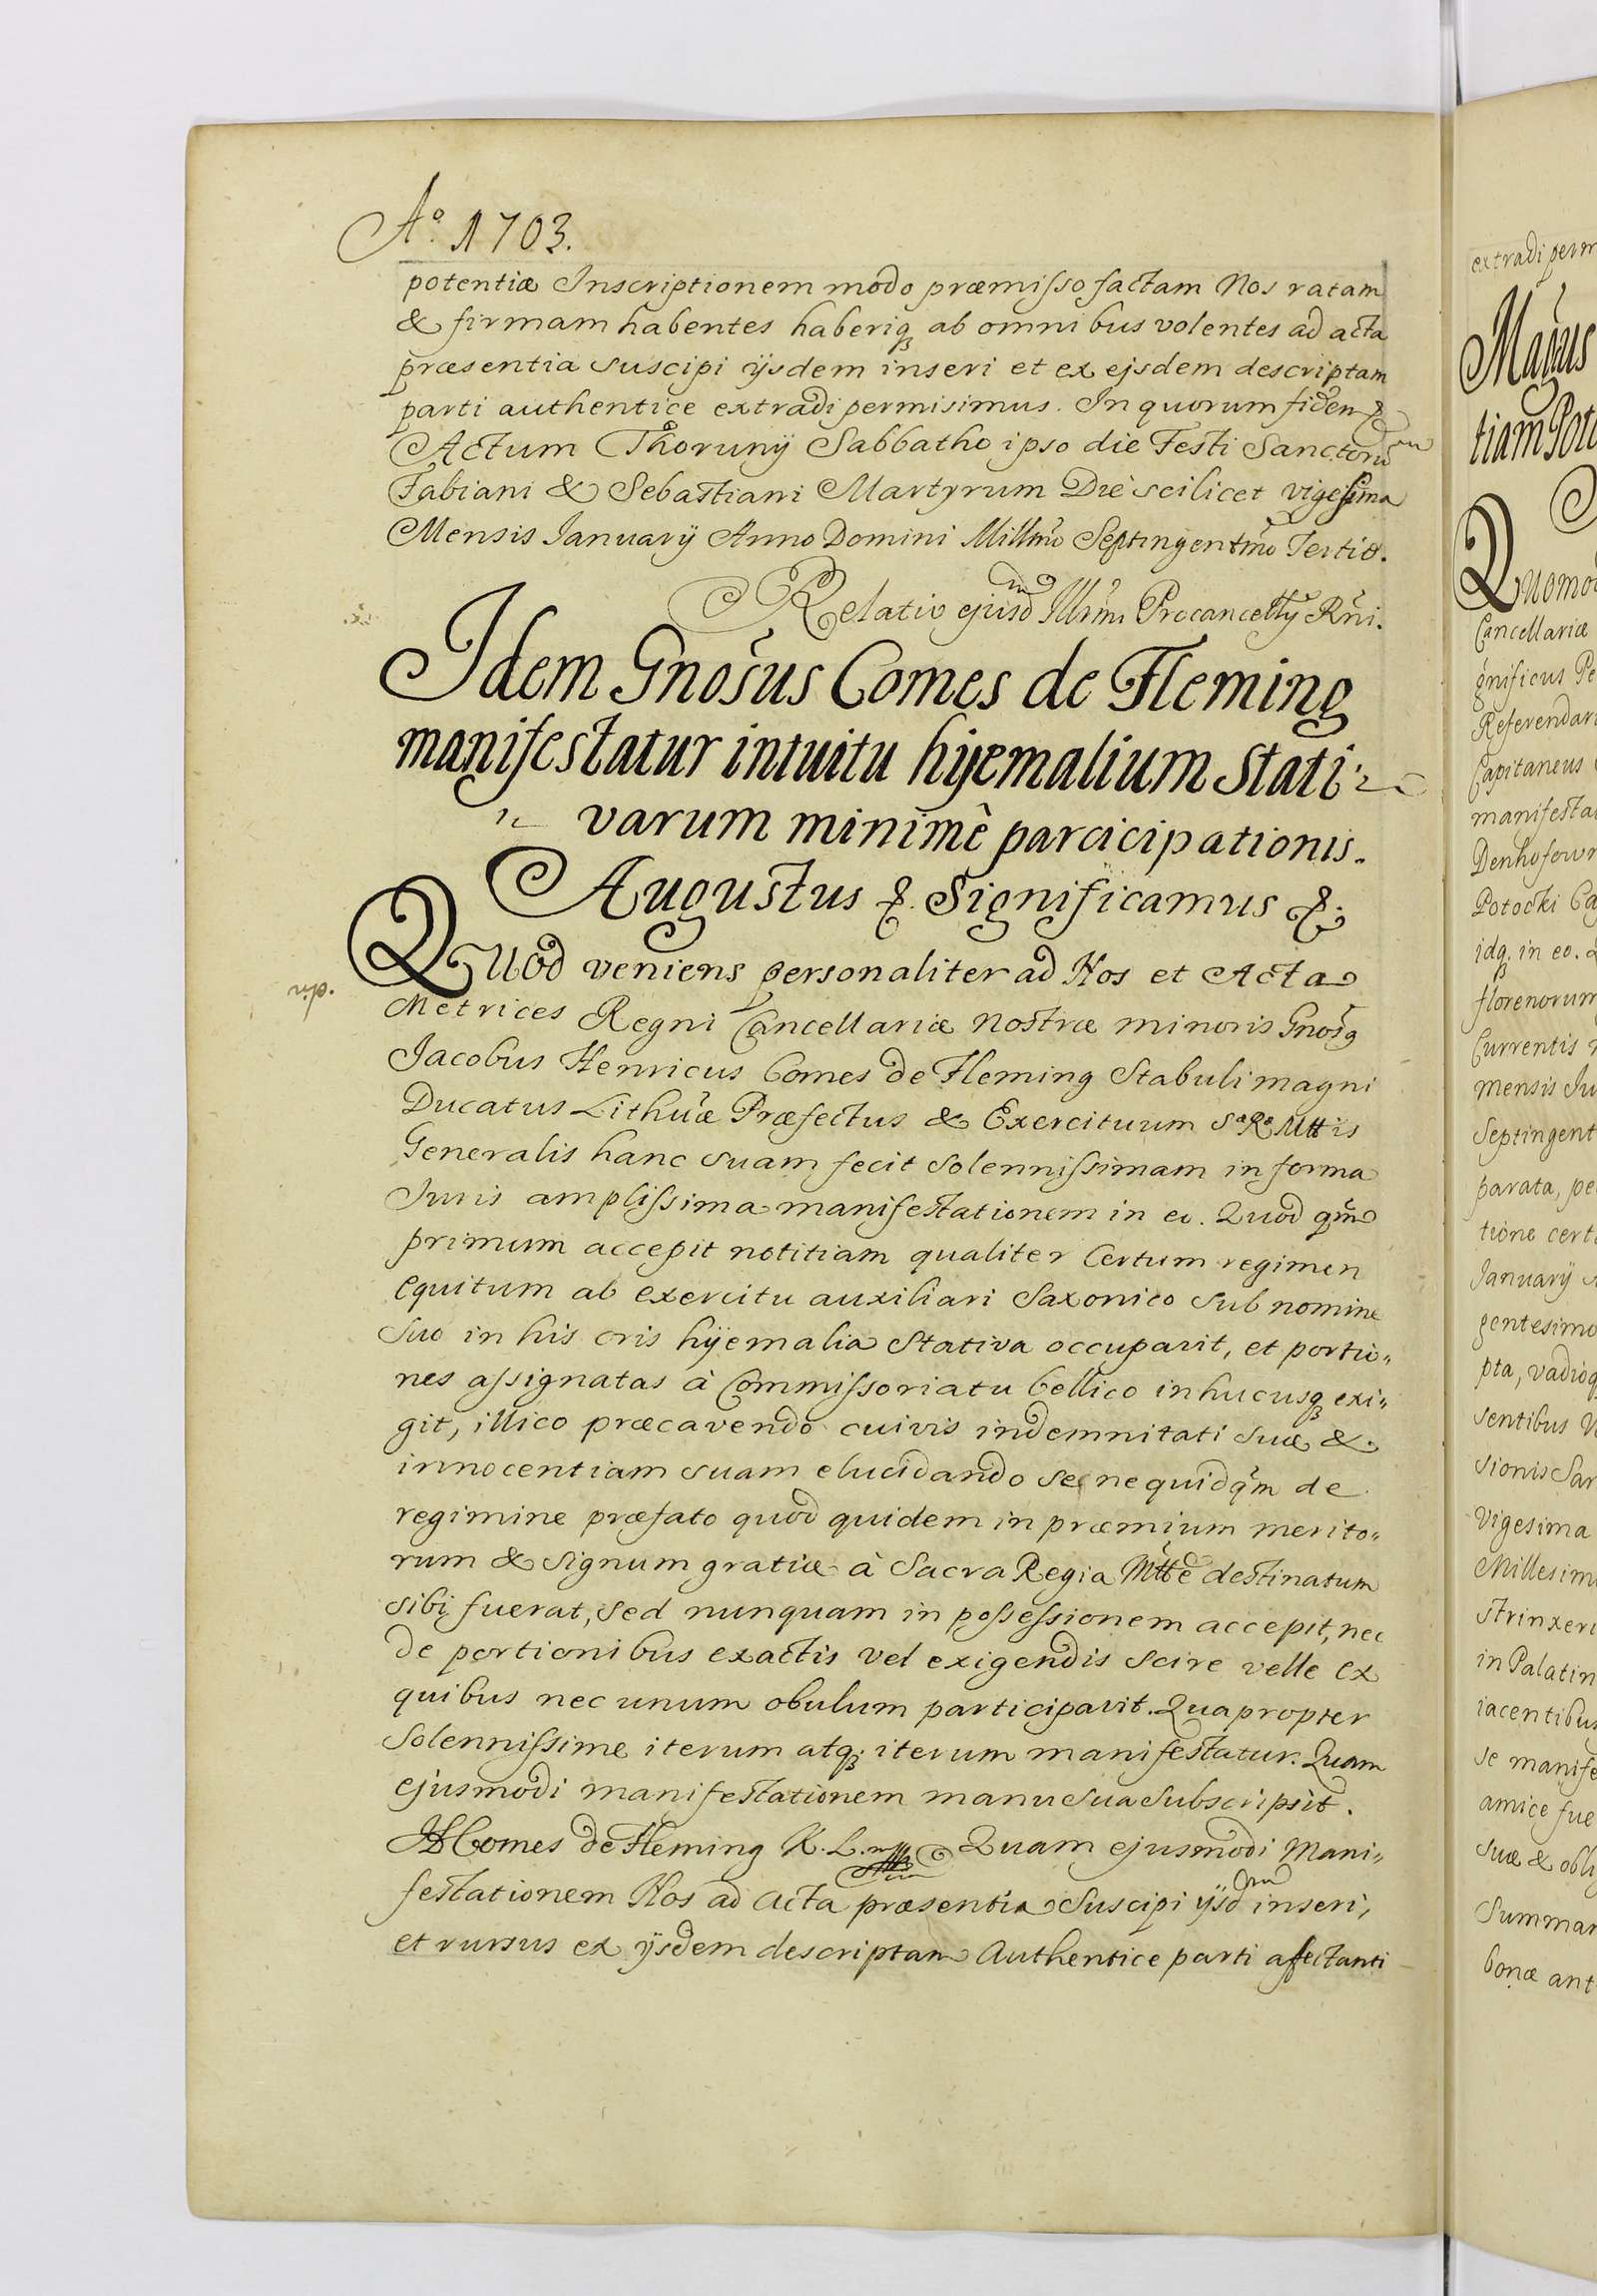 Aº. 1703.
potentiæ Inscriptionem modo præmisso factam Nos ratam
& firmam habentes haberiq; ab omnibus volentes ad acta
præsentia suscipi ijsdem inseri et ex ejsdem descriptam
parti authentice extradi permisimus. In quorum fidem &.
Actum Thorunij Sabbatho ipso die Festi Sanctorũ
Fabiani & Sebastiani Martyrum Die scilicet vigesima
Mensis Ianuarij Anno Domini Millmõ Septingentmõ Tertio.
Relatio ejusdm Illrmi Procancellrij Rñi.
Idem Gnosus Comes de Fleming
manifestatur intuitu hyemalium Stati-
varum minimè parcicipationis.
Augustus &. Significamus &.
Quod veniens personaliter ad Nos et Acta
Metrices Regni Cancellariæ nostræ minoris Gnosg
Jacobus Henricus Comes de Fleming Stabuli magni
Ducatus Lithuæ Præfectus & Exercituum Sæ Ræ Mttis
Generalis hanc suam fecit solennissimam in forma
Juris amplissima manifestationem in eo. Quod qm̃
primum accepit notitiam qualiter Certum regimen
equitum ab exercitu auxiliari Saxonico sub nomine
suo in his oris hyemalia Stativa occupavit, et portio„
nes assignatas à Commissoriatu bellico inhucusq; exi„
git, illico præcavendo cuivis indemnitati suæ &
innocentiam suam elucidando se nequidqm̃ de
regimine præfato quod quidem in præmium merito„
rum & signum gratiæ à Sacra Regia Mtte destinatum
sibi fuerat, sed nunquam in possessionem accepit, nec
de portionibus exactis vel exigendis scire velle ex
quibus nec unum obulum participavit. Quapropter
Solennissime iterum atq; iterum manifestatur. Quam
ejusmodi manifestationem manu sua subscripsit.
JH Comes de Fleming K. L. Quam ejusmodi Mani„
festationem Nos ad acta præsentia Suscipi ijsdm inseri,
et rursus ex ijsdem descriptam Authentice parti affectanti
extradi perm
Magus
tiam Poto
Quomod
Cancellariæ
gnificus Pe
Referendari
Capitaneus
manifesta
Denhofowr
Potocki Ca
idq; in eo.
florenorum
Currentis
mensis Iu
Septingent
parata, pe
tione cert
Ianuarij
gentesimo
pta, vadioq
sentibus
sionis Sar
Vigesima
Millesim
strinxeri
in Palatin
iacentibus
se manife
amice fue
suæ & obli
Summar
bonæ ant